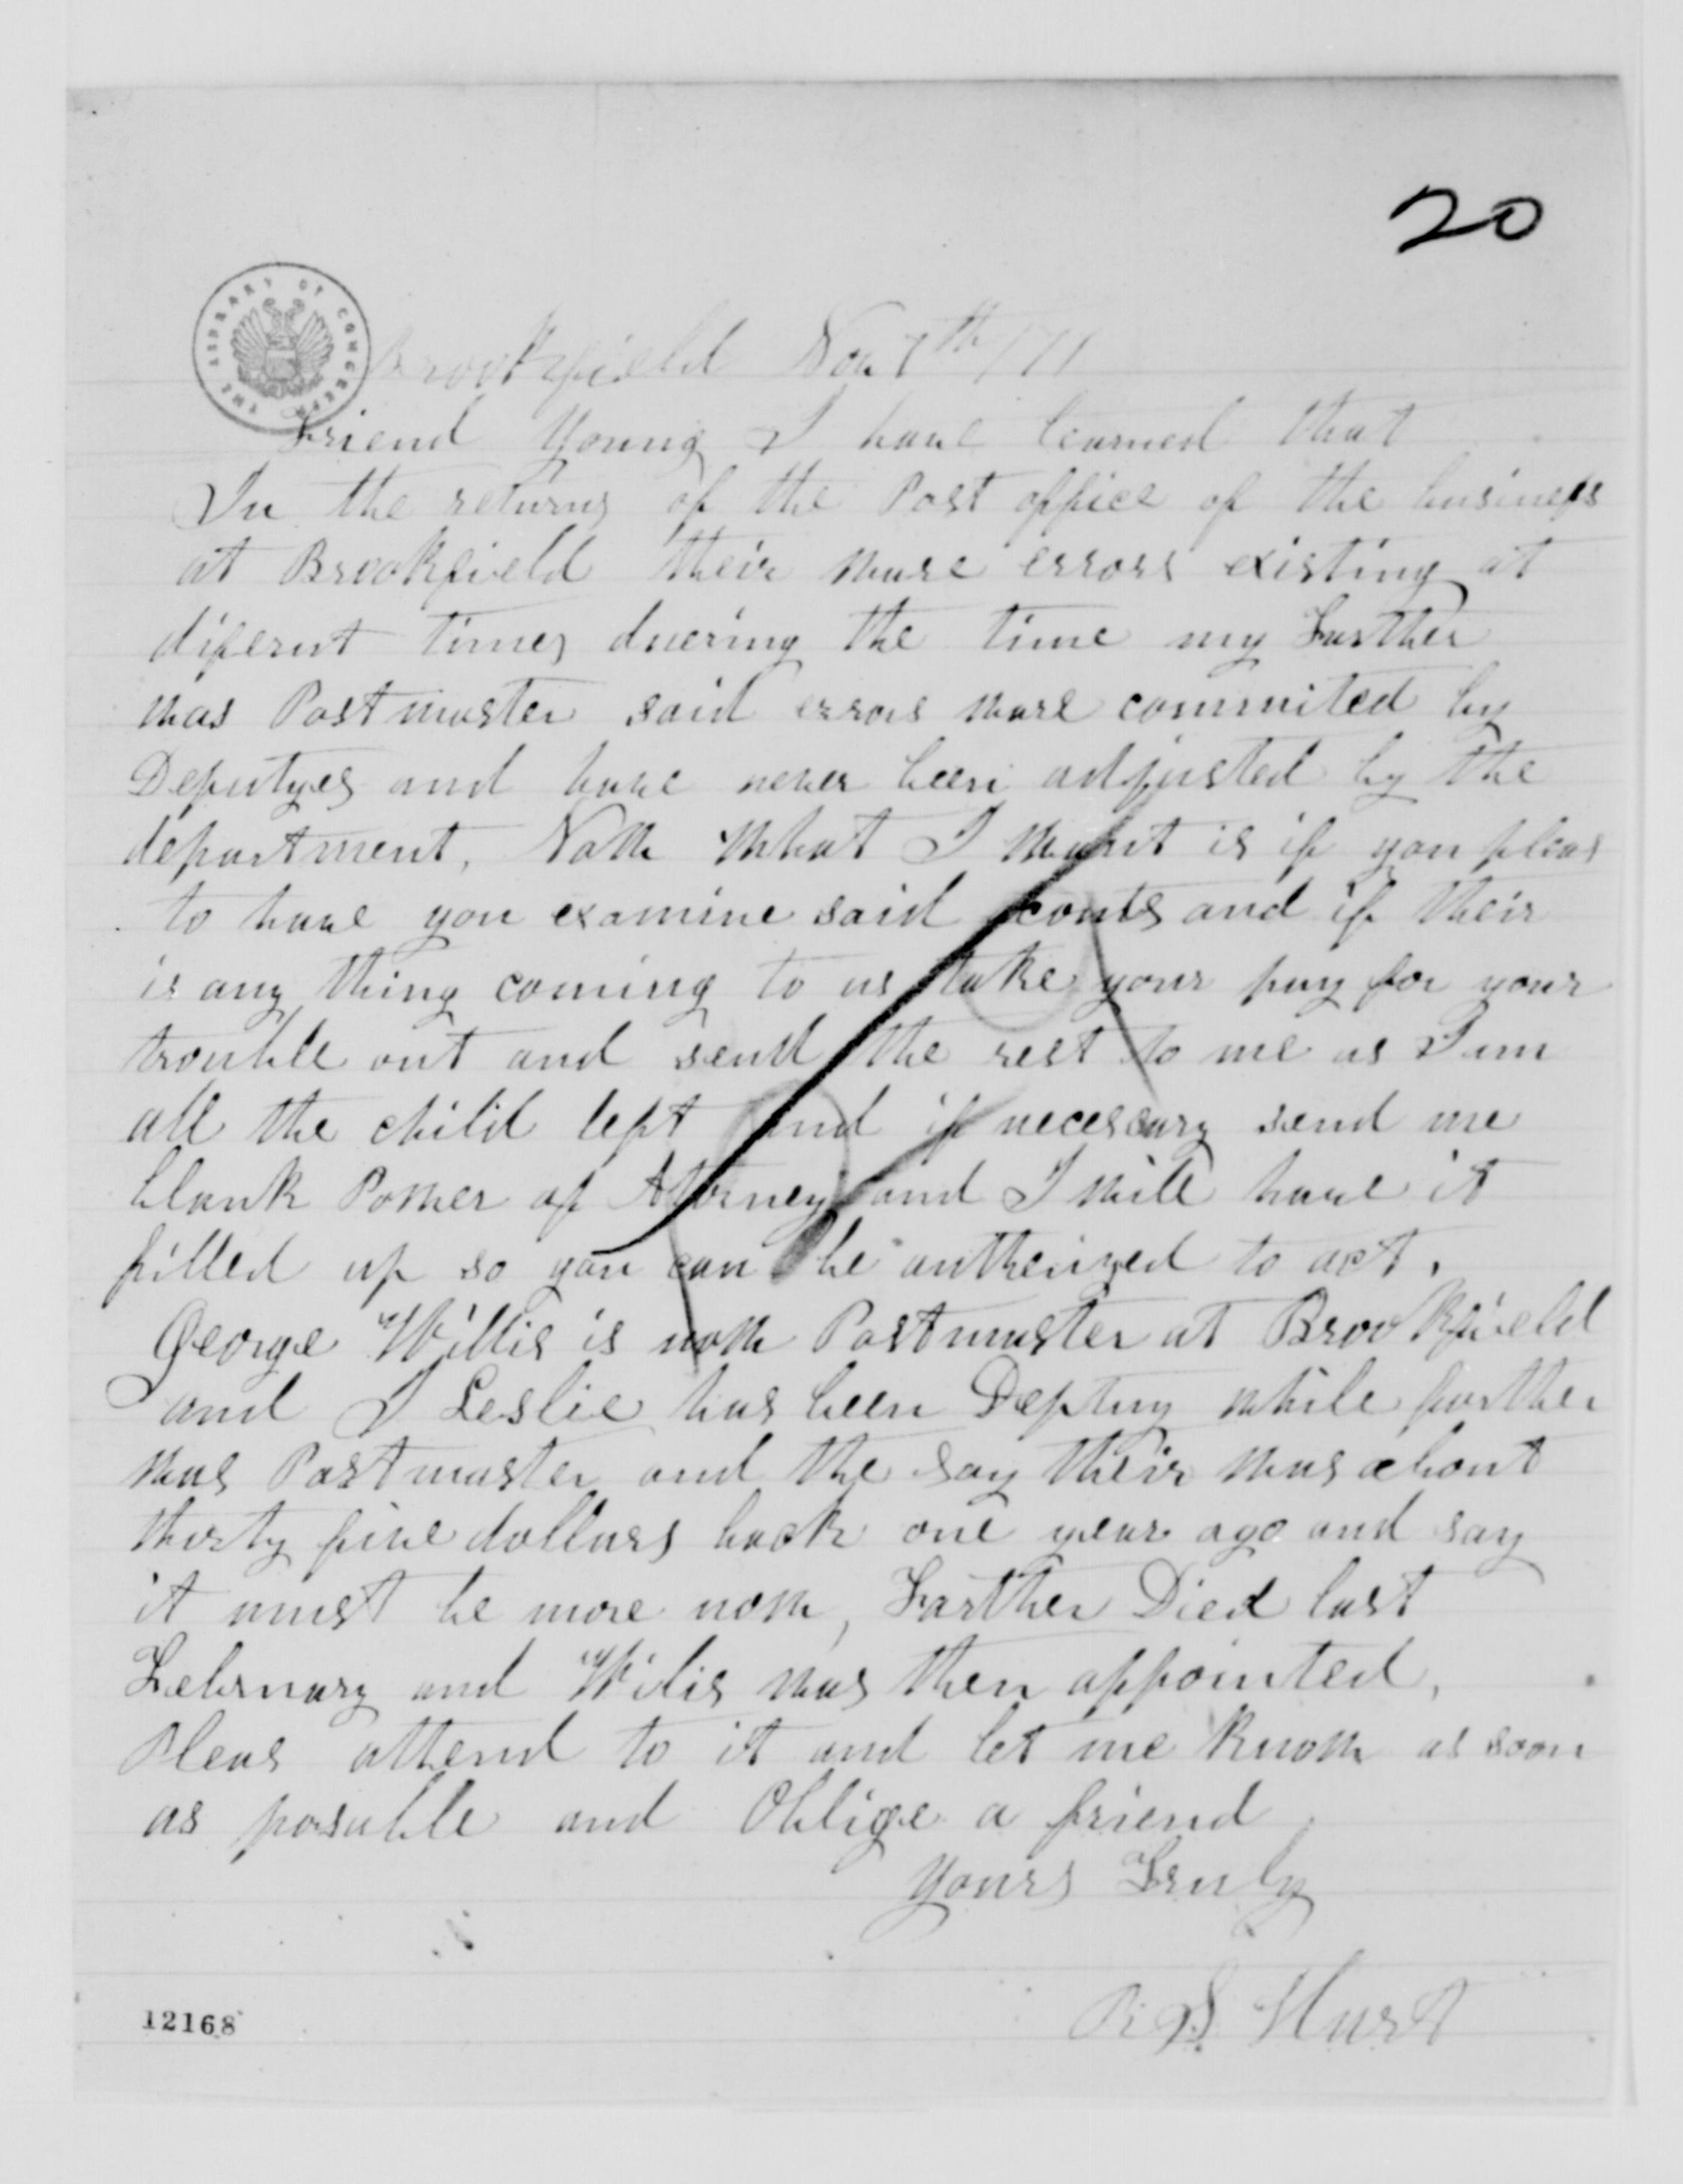 20
THE LIBRARY OF CONGRESS
Brookfield Nov 7th / 71
Friend Young I have learned that
In the returns of the Post office of the business
at Brookfield their ware errors existing at
diferent times duering the time my Farther
was Postmaster said errors ware commited by
Deputyes and have never been adjusted by the
department, Now what I want is if you pleas
to have you examine said conts and if their
is any thing coming to us take your pay for your
trouble out and send the rest to me as I am
all the child left and if necessary send me
blank Power of Attorney and I will have it
filled up so you can be autherized to act.
George Willis is now Postmaster at Brookfield
and I Leslie has been Deptuy while farther
was Postmaster and the say their was about
thirty five dollars back one year ago and say
it must be more now, Farther Died last
February and Wilis was then appointed,
Pleas attend to it and let me know as soon
as posable and Oblige a friend
Yours Truly
Hurst
12168